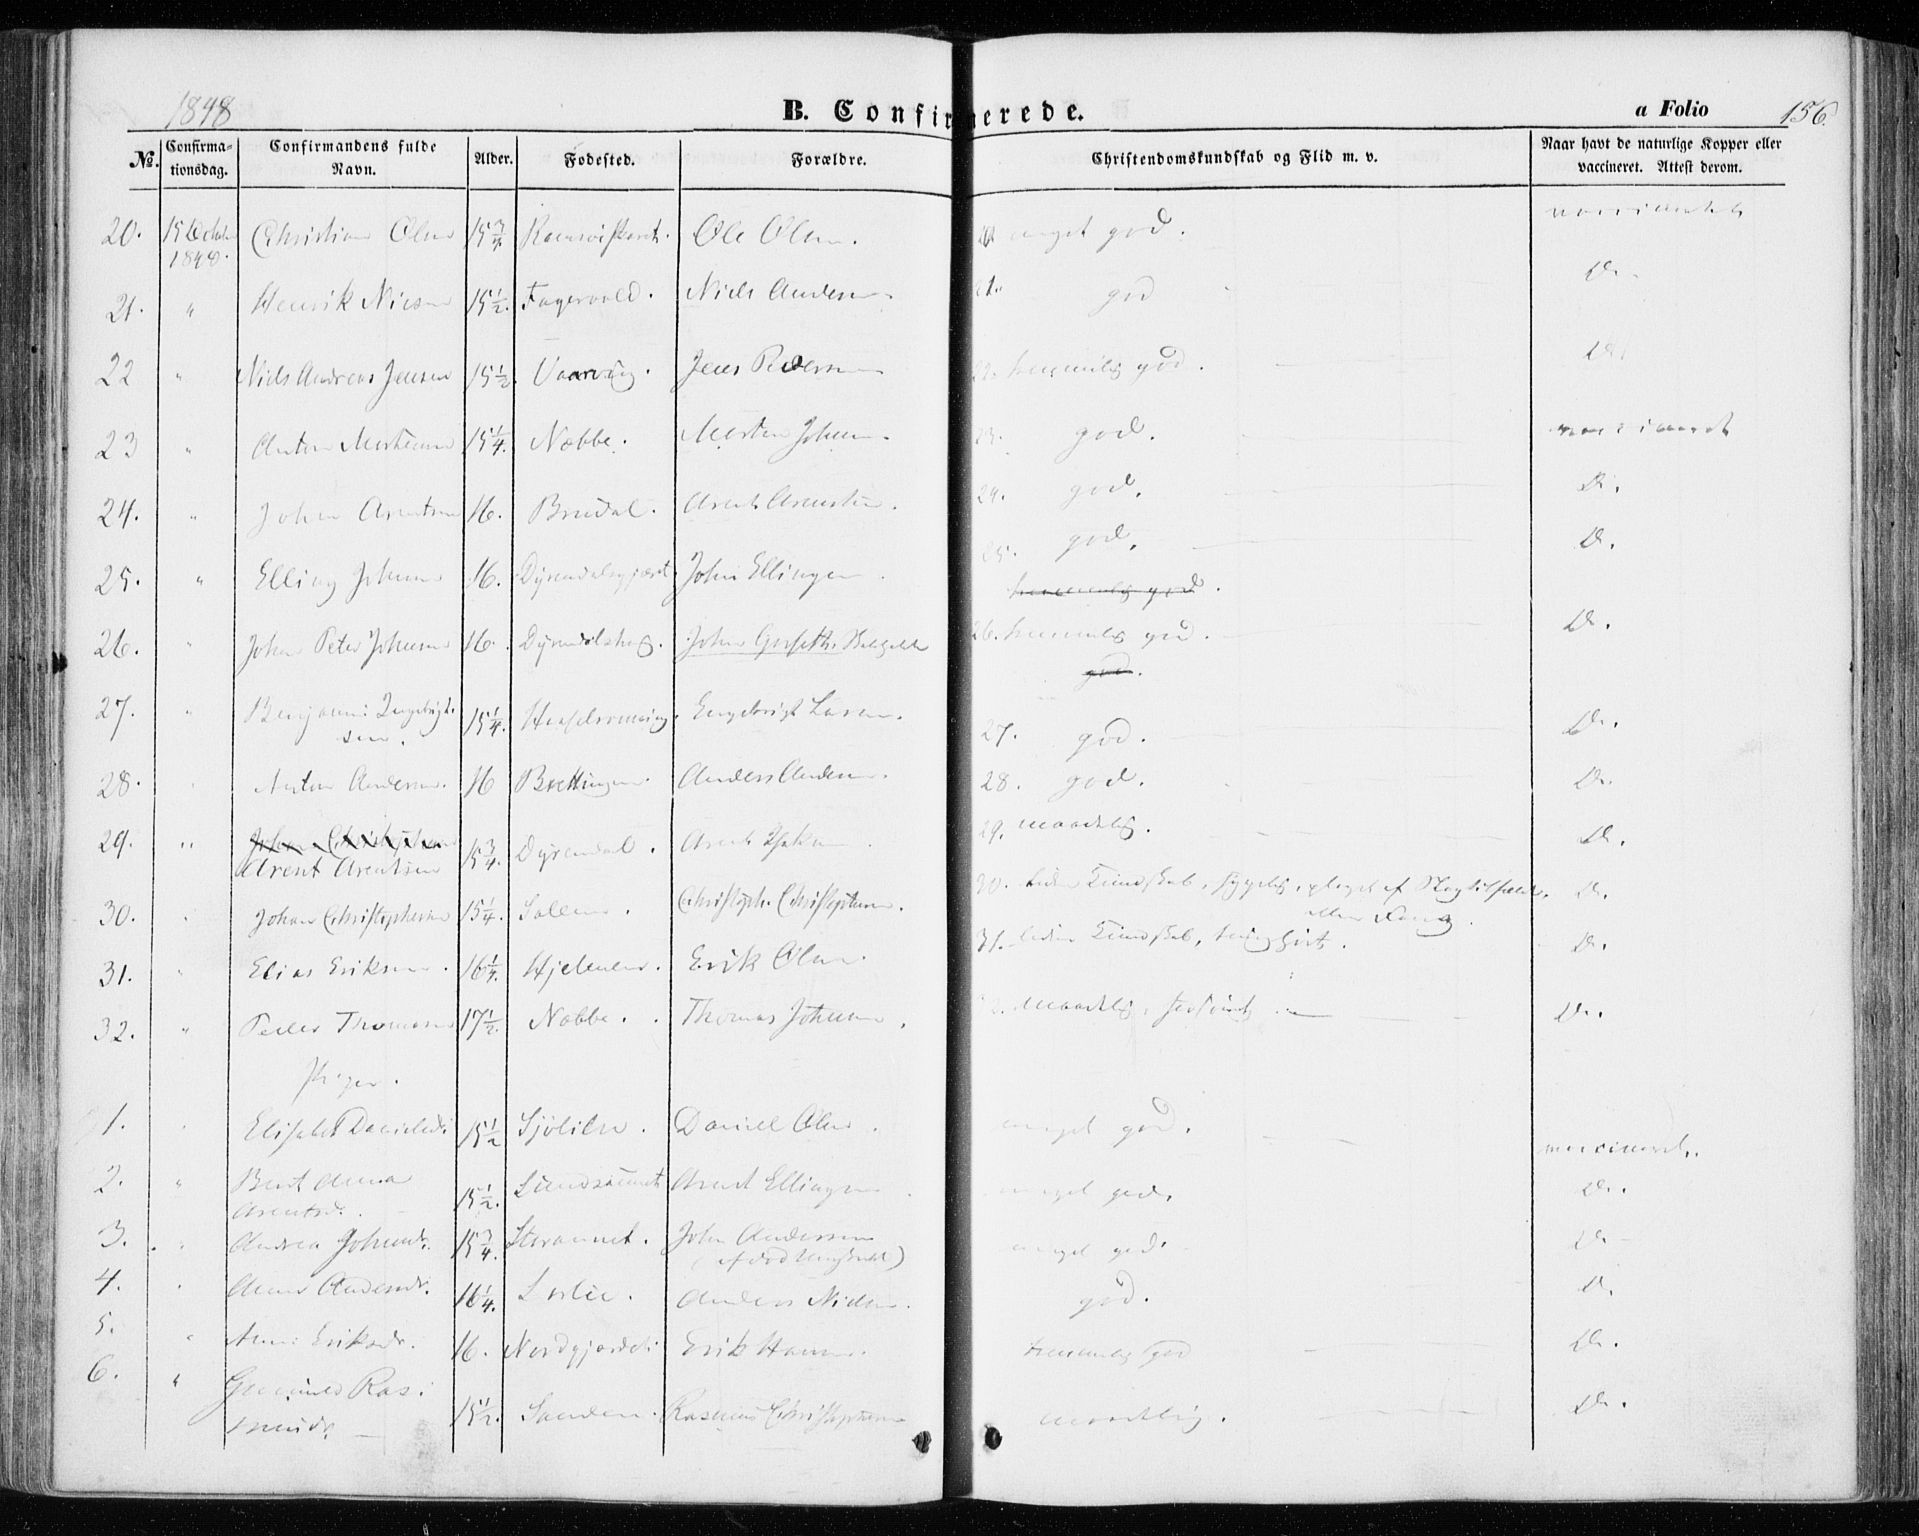 1848 B. Confirmerede. a Folio 156.
No. Confirmationsdag. Confirmandens fulde Navn. Alder. Fødested. Forældre. Christendomskundskab og Flid m. v. Naar havt de naturlige Kopper eller vaccineret. Attest derom.
20. 15 October 1848. Christian Olsen 15 3/4 Ole Olsen. 20 meget god. vaccineret
21. " Henrik Nielsen 15 1/2. Fagervold. Niels Andersen 21. god Do.
22 " Niels Andreas Jensen 15 1/2. Vaarvig. Jens Pedersen 22. temmelig god. Do.
23 " Anton Mortensen 15 1/4. Næbbe. Morten Johnsen. 23. god. vaccineret
24. " Johan Arentsen 16. Bredal. Arent Arentsen. 24. god. Do.
25. " Elling Johnsen 16. Dyrendalsgjerdet. John Ellingsen. 25. god. Do.
temmelig god.
26. " Johan Peter Johnsen 16. Dyrendalshoug. John 26. temmelig god. Do.
god.
27. " Benjamin Ingebrigt-
sen. 15 1/4. Engebrigt Larsen. 27. god. Do.
28. Anton Andersen 16 Brettingen. Anders Andersen. 28. god. Do.
29. " Johan Christophersen
Arent Arentsen 15 3/4. Dyrendal. Arent 29. maadelig. Do.
30. " Johan Christophersen 15 1/4. Sollien. Christoph. Christophersen. 30. liden Kundskab, sygelig, plaget af Slagtilfælde. Do.
31. " Elias Eriksen. 16 1/4. Hjelmen. Erik Olsen. 31. liden Kundskab, Do.
32. " Peder Thomasen 17 1/2. Næbbe. Thomas Johnsen. 32. maadelig, Do.
Piger.
1. Elisabet Danielsdr. 15 1/2 Sjølilien. Daniel Olsen. meget god. vaccineret.
2. " Berit Anna
Arentsd. 15 1/2. Arent Ellingsen meget god. Do.
3. " Andrea Johnsdr. 15 3/4. Storaunet. John Andersen meget god. Do.
4. Anne Andersdr. 16 1/4. Lerlie. Anders Nielsen. god. Do.
5. " Anne Eriksdr. 16. Nordgjerdet Erik Hansen. temmelig god Do.
6. " Gunild Ras-
musdr. 15 1/2. Sanden. Rasmus Christophersen maadelig. Do.